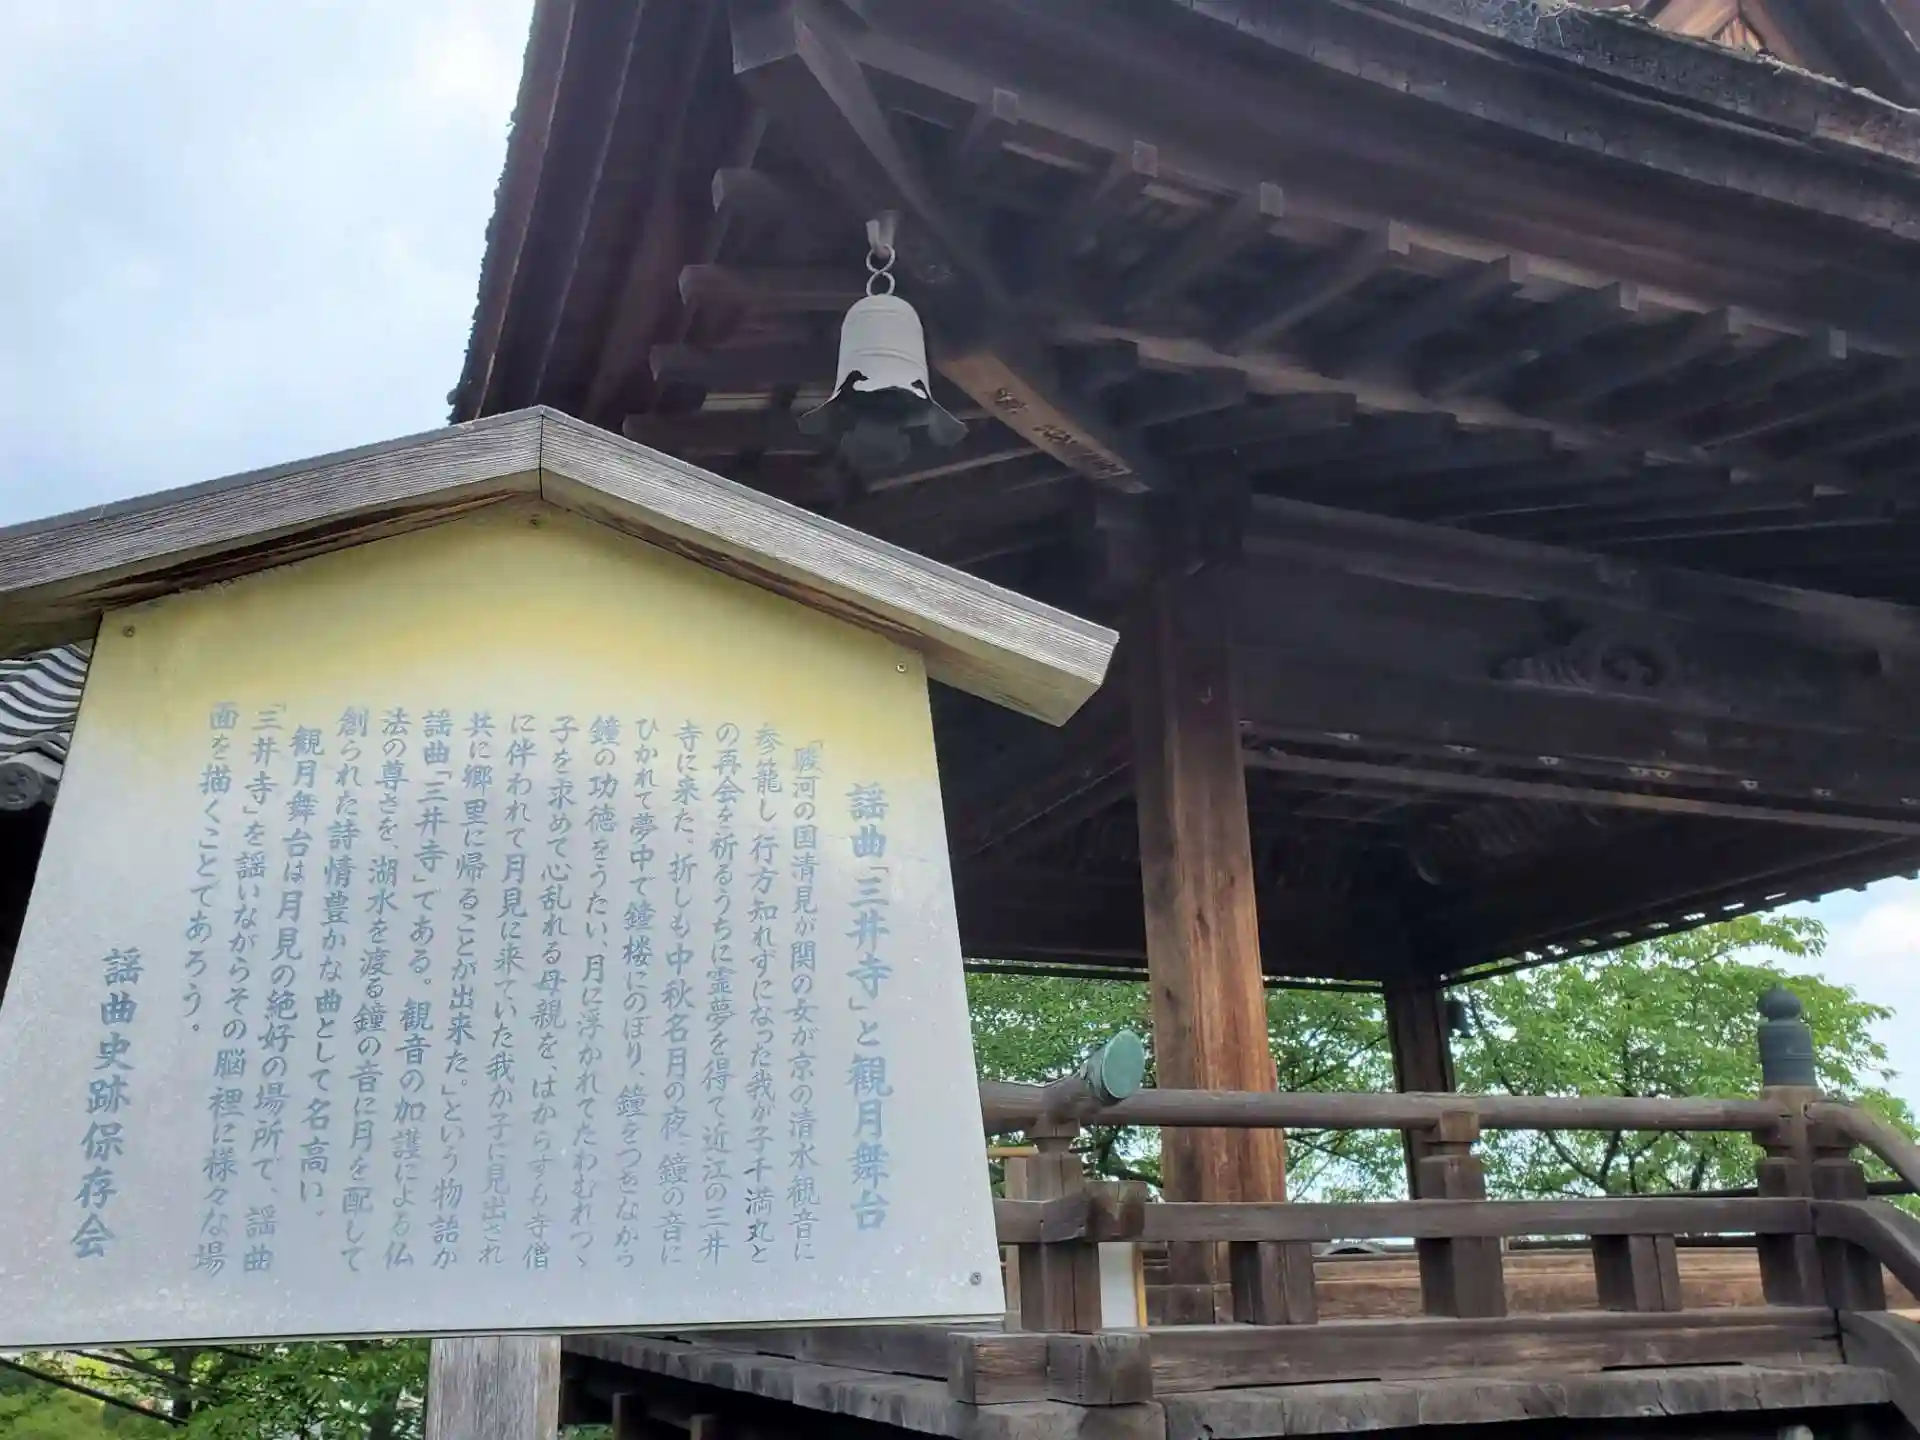 謡曲「三井寺」と観月舞台
「駿河の国清見が関の女が京の清水観音に
参籠し行方知れずになった我が子千満丸と
の再会を祈るうちに霊夢を得て近江の三井
寺に来た。折しも中秋名月の夜、鐘の音に
ひかれて夢中で鐘楼にのぼり、鐘をつきながら
鐘の功徳をうたい、月に浮かれてたわむれつゝ
子を求めて、心乱れる母親を、はからずも寺僧
に伴われて月見に来ていた我が子に見出され
共に郷里に帰ることが出来た。」という物語が
謡曲「三井寺」である。観音の加護による仏
法の尊さを、湖水を渡る鐘の音に月を配して
創られた詩情豊かな曲として名高い。
観月舞台は月見の絶好の場所で、謡曲
「三井寺」を謡いながらその脳裡に様々な場
面を描くことであろう。
謡曲史跡保存会